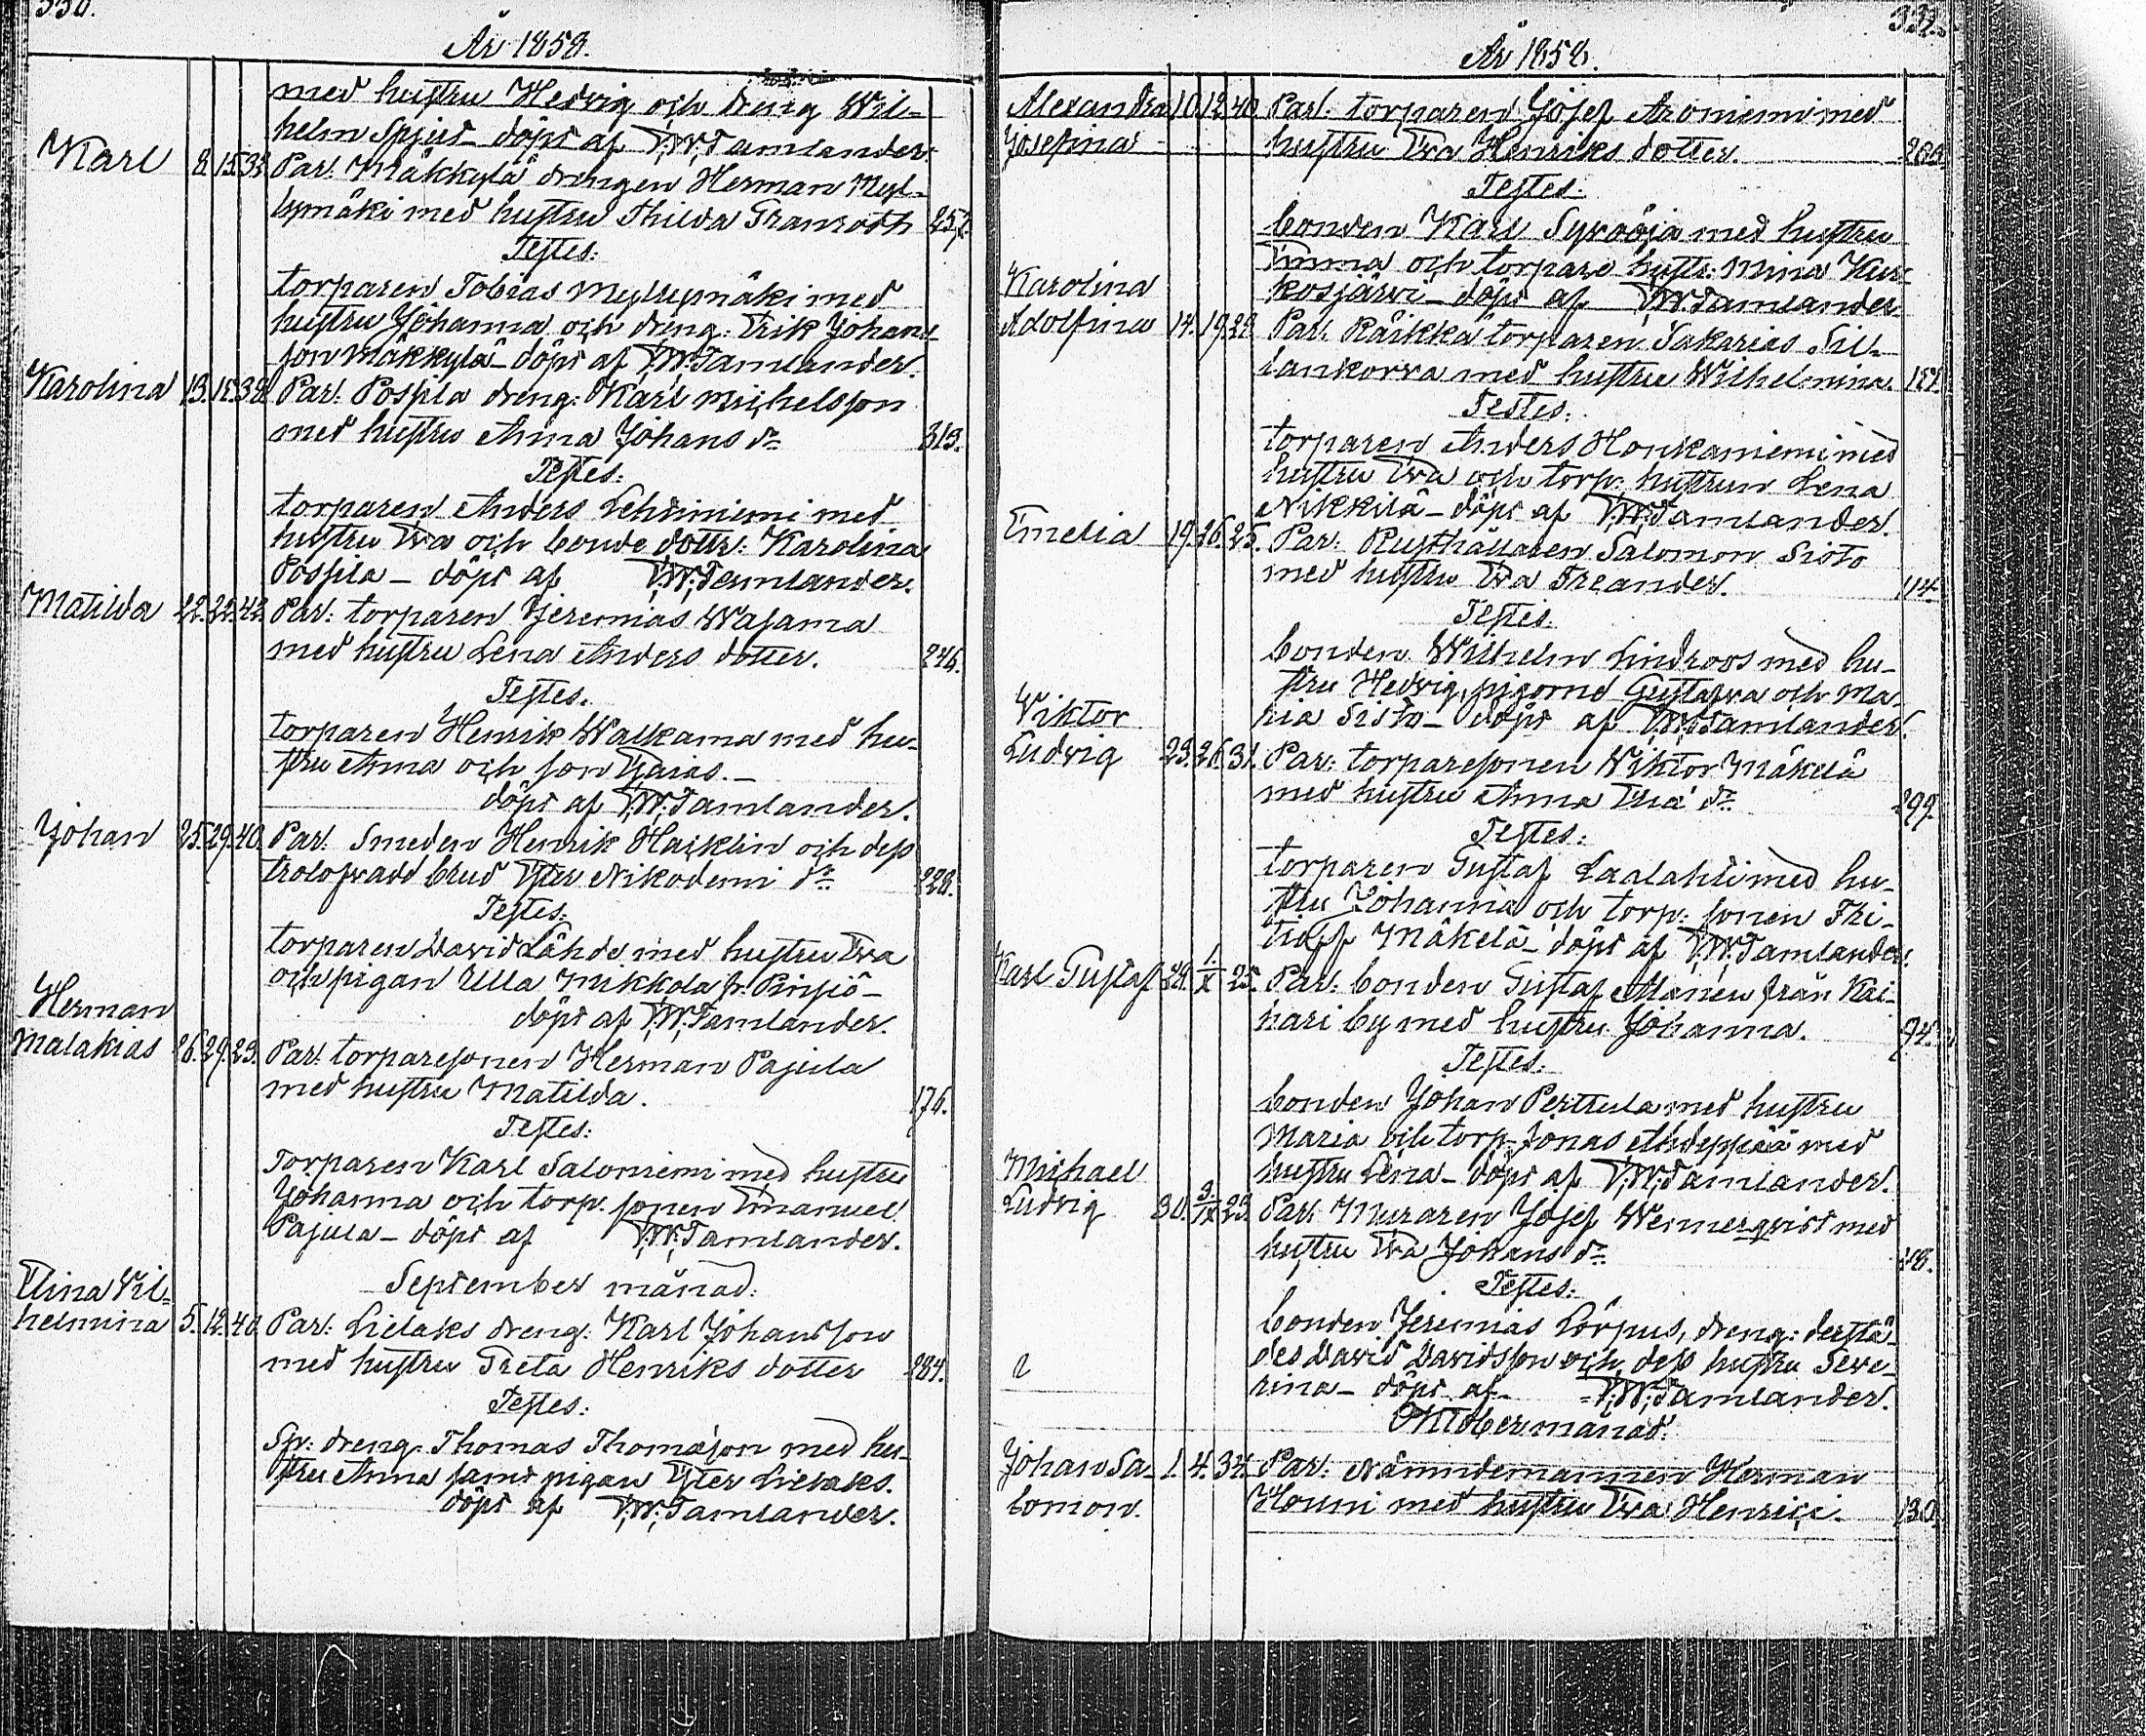 330.
År 1858.
med hustru Hedvig och dreng Wil-
helm Spjut - döpt af F. W. Tamlander.
Karl 8. 15. 33. Par. Mäkkylä drengen Herman Myl-
lymäki med hustru Thilda Granroth 257.
Testes:
torparen Tobias Myllymäki med
hustru Johanna och dreng: Erik Johans-
son Mäkkylä - döpt af F. W. Tamlander.
Karolina 13. 15. 38. Par: Pospila dreng: Karl Michelsson
med hustru Anna Johans dr 313.
Testes:
torparen Anders Lehdiniemi med
hustru Eva och bonde dottr: Karolina
Pospila - döpt af F. W. Tamlander.
Matilda 22. 22. 42. Par: torparen Jeremias Wasama
med hustru Lena Anders dotter. 246.
Testes.
torparen Henrik Walkama med hu-
stru Anna och son Esaias. -
döpt af F. W. Tamlander.
Johan 25. 29. 40. Par. Smeden Henrik Haiklin och dess
trolofvade brud Ester Nikodemi dr 228.
Testes:
torparen David Lähde med hustru Eva
och pigan Ulla Mikkola fr. Pinsiö -
döpt af F. W. Tamlander.
Herman
Malakias 26. 29. 23. Par: torparesonen Herman Pajula
med hustru Matilda. 176.
Testes:
Torparen Karl Saloniemi med hustru
Johanna och torp. sonen Emanuel
Pajula - döpt af F. W. Tamlander.
September månad.
Elina Vil-
helmina 5. 12. 40. Par: Lielaks dreng: Karl Johansson
med hustru Greta Henriks dotter 284.
Testes:
Sp: dreng. Thomas Thomasson med hu-
stru Anna samt pigan Ester Lielaks.
döpt af F. W. Tamlander.
331.
År 1858.
Alexandra 10. 12. 40. Par: torparen Josef Aroniemi med
Josefina hustru Eva Henriks dotter.
Testes:
bonden Karl Syvöoja med hustru
Emma och torpare hustr: Mina Kur-
Karolina
kosjärvi - döpt af F. W. Tamlander.
Adolfina 14. 19. 29. Par. Räikkä torparen Sakarias Sil-
lankorva med hustru Wilhelmina.
Testes:
torparen Anders Honkaniemi med
hustru Eva och torp: hustrun Lena
Nikkilä - döpt af F. W. Tamlander.
Emelia 19. 26. 25. Par: Rusthållaren Salomon Sioto
med hustru Eva Freander. 114.
Testes:
bonden Wilhelm Lindroos med hu-
stru Hedvig, pigorna Gustafva och Ma-
Viktor
ria Sisto - döpt af F. W. Tamlander.
Ludvig 23. 26. 31. Par: torparesonen Viktor Mäkelä
med hustru Anna Eliæ dr 299.
Testes:
torparen Gustaf Laalahti med hu-
stru Johanna och torp: sonen Fri-
tiolf Mäkelä - döpt af F. W. Tamlander.
Karl Gustaf 28. 1/X 25. Par: bonden Gustaf Manen från Kai-
hari by med hustru Johanna. 74.
Testes:
bonden Johan Perttula med hustru
Maria och torp. Jonas Ahdeppää med
Michael
hustru Lena - döpt af F. W. Tamlander.
Ludvig 30. 3/IX 23. Par: Muraren Josef Wennerqvist med
hustru Eva Johans dr
Testes:
bonden Jeremias Lörpus, dreng: derstä-
des David Davidsson och dess hustru Seve-
rina - döpt af F. W. Tamlander.
Oktober månad.
Johan Sa- 1. 4. 34. Par: Nämndemannen Herman
lomon. Houni med hustru Eva Henrici. 130.